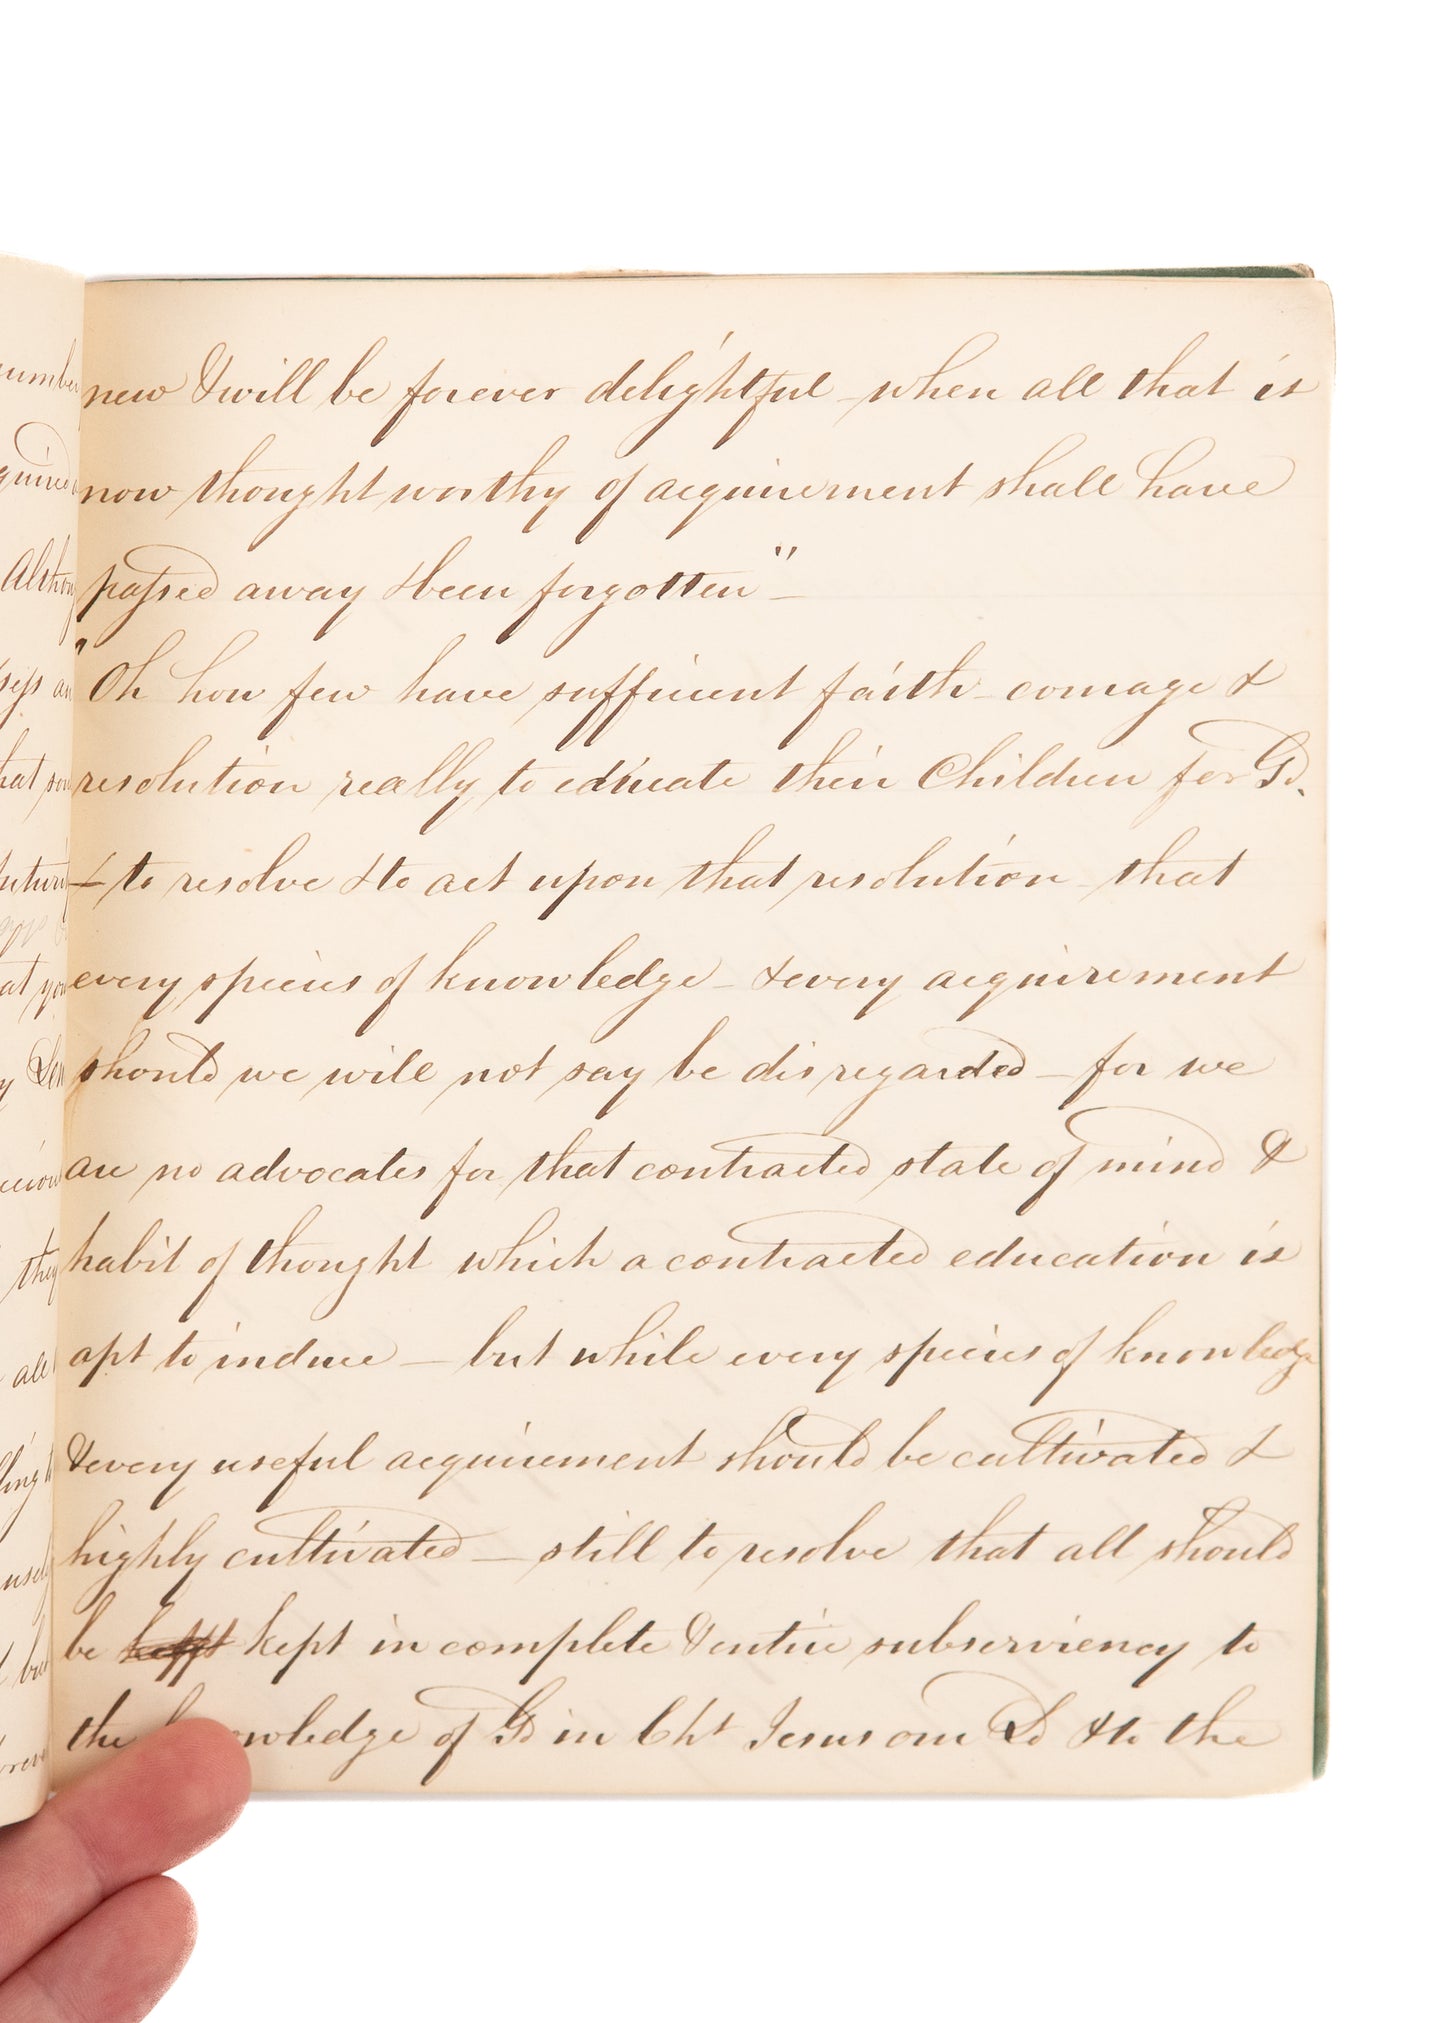 new & will be forever delightful - when all that is
now thought worthy of acquirement shall have
passed away & been forgotten" -
"Oh how few have sufficient faith - courage &
resolution really to educate their Children for Gd.
- to resolve & to act upon that resolution - that
every species of knowledge - & every acquirement
should we will not say be disregarded - for we
are no advocates for that contracted state of mind &
habit of thought which a contracted education is
apt to induce - but while every species of knowledge
& every useful acquirement should be cultivated &
highly cultivated - still to resolve that all should
be kept in complete & entire subserviency to
the knowledge of Gd in Cht Jesus our Ld & to the